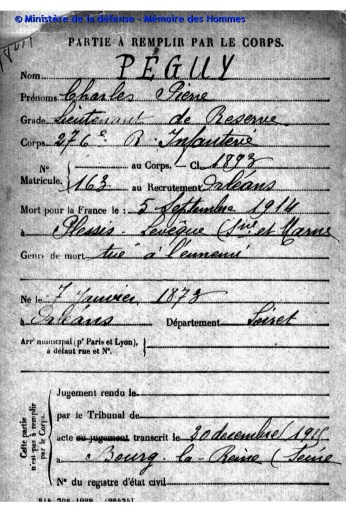 © Ministère de la défense - Mémoire des Hommes
PARTIE À REMPLIR PAR LE CORPS.
Nom PÉGUY
Prénoms Charles Pierre
Grade Lieutenant de Réserve
Corps 276e R. Infanterie
N° au Corps. — Cl. 1893
Matricule. 163 au Recrutement Orléans
Mort pour la France le : 5 Septembre 1914
à Plessis-Levêque (Sne et Marne
Genre de mort tué à l'ennemi
Né le 7 Janvier 1873
à Orléans Département Loiret
Arrt municipal (pr Paris et Lyon),
à défaut rue et N°.
Cette partie n'est pas à remplir par le Corps.
Jugement rendu le
par le Tribunal de
acte ou jugement transcrit le 30 décembre 1915
à Bourg-la-Reine (Seine
N° du registre d'état civil